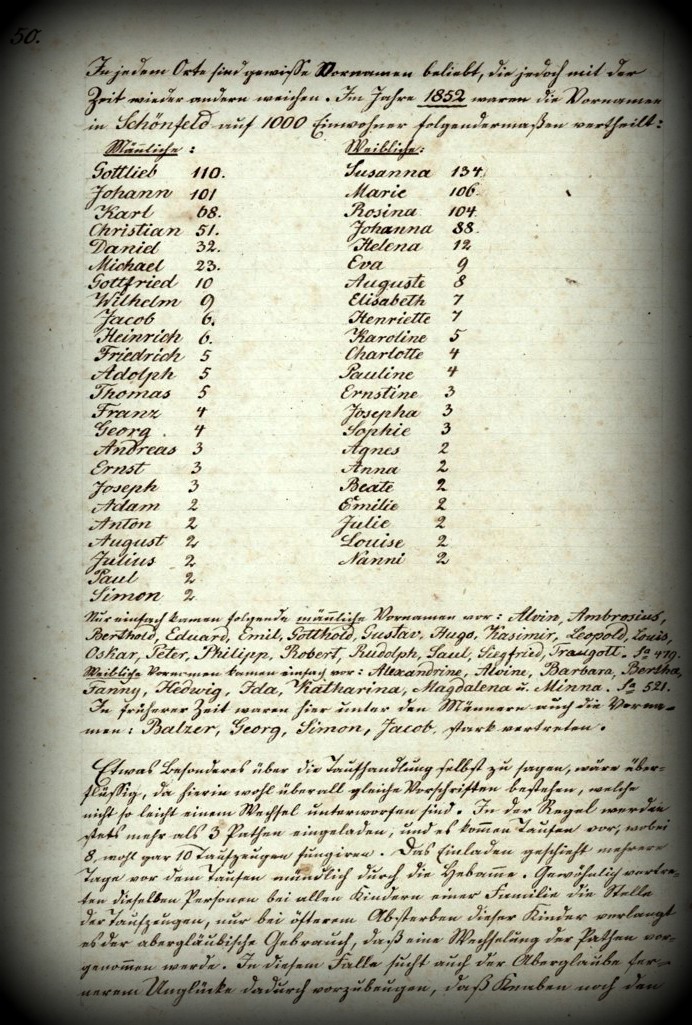 50.
In jedem Orte sind gewisse Vornamen beliebt, die jedoch mit der
Zeit wieder andern weichen. Im Jahre 1852 waren die Vornamen
in Schönfeld auf 1000 Einwohner folgendermaßen vertheilt:
Mänliche: Weibliche:
Gottlieb 110. Susanna 134.
Johann 101 Marie 106.
Karl 68. Rosina 104.
Christian 51. Johanna 88.
Daniel 32. Helena 12
Michael 23. Eva 9
Gottfried 10 Auguste 8
Wilhelm 9 Elisabeth 7
Jacob 6. Henriette 7
Heinrich 6. Karoline 5
Friedrich 5 Charlotte 4
Adolph 5 Pauline 4
Thomas 5 Ernstine 3
Franz 4 Josepha 3
Georg. 4 Sophie 3
Andreas 3 Agnes 2
Ernst 3 Anna 2
Joseph 3 Beate 2
Adam 2 Emilie 2
Anton 2 Julie 2
August 2 Louise 2
Julius 2 Nanni 2
Paul 2
Simon 2
Nur einfach kamen folgende männliche Vornamen vor: Alvin, Ambrosius,
Berthold, Eduard, Emil, Gotthold, Gustav, Hugo, Kasimir, Leopold, Louis,
Oskar, Peter, Philipp, Robert, Rudolph, Saul, Siegfried, Traugott. Sa 479.
Weibliche Vornamen kamen einfach vor: Alexandrine, Alvine, Barbara, Bertha,
Fanny, Hedwig, Ida, Katharina, Magdalena u. Minna. Sa 521.
In früherer Zeit waren hier unter den Männern auch die Vorna-
men: Balzer, Georg, Simon, Jacob, stark vertreten.
Etwas Besonderes über die Taufhandlung selbst zu sagen, wäre über-
flüssig, da hierin wohl überall gleiche Vorschriften bestehen, welche
nicht so leicht einem Wechsel unterworfen sind. In der Regel werden
stets mehr als 3 Pathen eingeladen, und es kommen Taufen vor, wobei
8, wohl gar 10 Taufzeugen fungiren. Das Einladen geschieht mehrere
Tage vor dem Taufen mündlich durch die Hebamme. Gewöhnlich vertre-
ten dieselben Personen bei allen Kindern einer Familie die Stelle
der Taufzeugen, nur bei öfterem Absterben dieser Kinder verlangt
es der abergläubische Gebrauch, daß eine Wechselung der Pathen vor-
genommen werde. In diesem Falle sucht auch der Aberglaube fer-
nerem Unglücke dadurch vorzubeugen, daß Knaben noch den